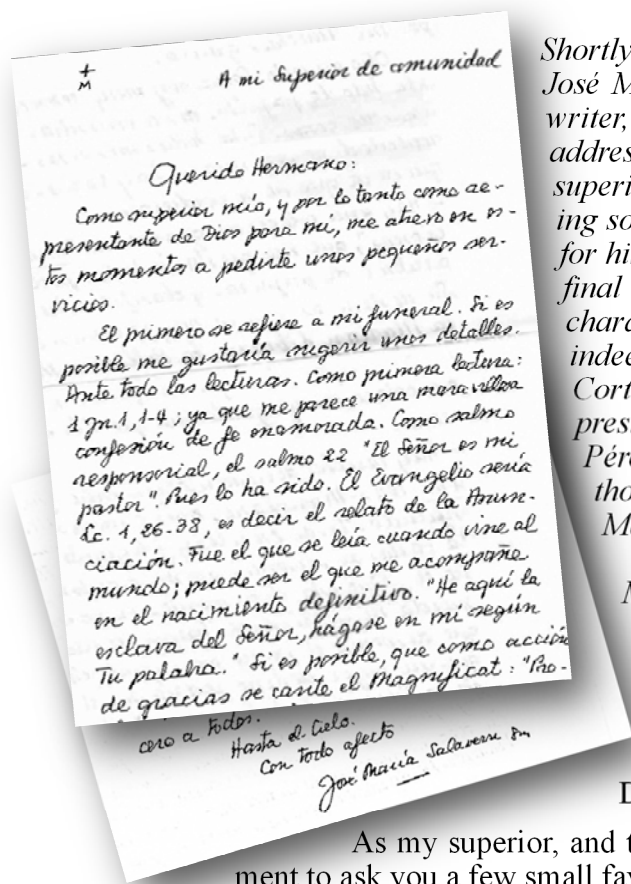 +
M
A mi Superior de comunidad
Querido Hermano:
Como superior mío, y por lo tanto como re-
presentante de Dios para mí, me atrevo en es-
tos momentos a pedirte unos pequeños ser-
vicios.
El primero se refiere a mi funeral. Si es
posible me gustaría sugerir unos detalles.
Ante todo las lecturas. Como primera lectura:
1 Jn. 1, 1-4; ya que me parece una maravillosa
confesión de fe enamorada. Como salmo
responsorial, el salmo 22 "El Señor es mi
pastor". Pues lo ha sido. El Evangelio sería
Lc. 1, 26-38, es decir el relato de la Anun-
ciación. Fue el que se leía cuando vine al
mundo; puede ser el que me acompañe
en el nacimiento definitivo. "He aquí la
esclava del Señor, hágase en mí según
Tu palabra." Si es posible, que como acción
de gracias se cante el Magnificat: "Pro-
cero a todos.
Hasta el Cielo.
Con todo afecto
José María Salaverri sm
Shortly
José M
writer,
addres
superi
ing so
for hi
final
chara
indee
Cort
pres
Pére
tho
M
D
As my superior, and t
ment to ask you a few small fav